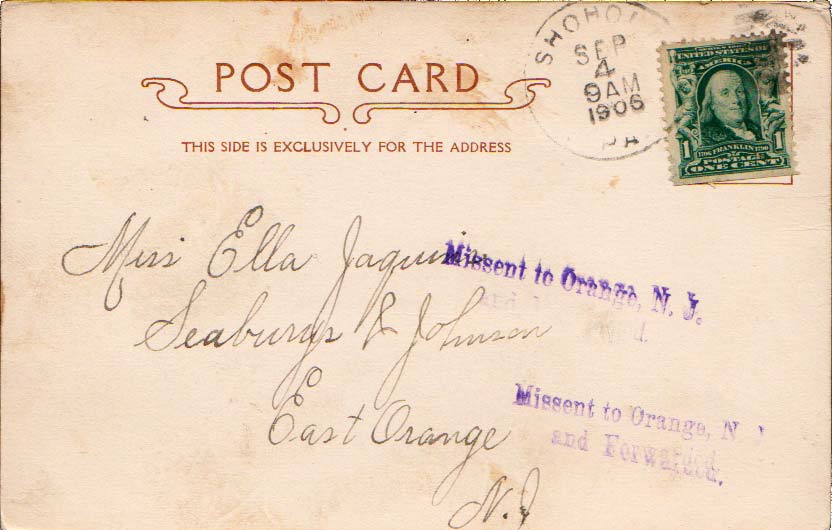 POST CARD
THIS SIDE IS EXCLUSIVELY FOR THE ADDRESS
SHOHOL
SEP
4
9AM
1906
PA
SERIES 1902
UNITED STATES OF
AMERICA
1706 FRANKLIN 1790
1 POSTAGE 1
ONE CENT
Miss Ella
Seaburys & Johnson
East Orange
N.J
Missent to Orange, N. J.
and
Missent to Orange, N J
and Forwarded.